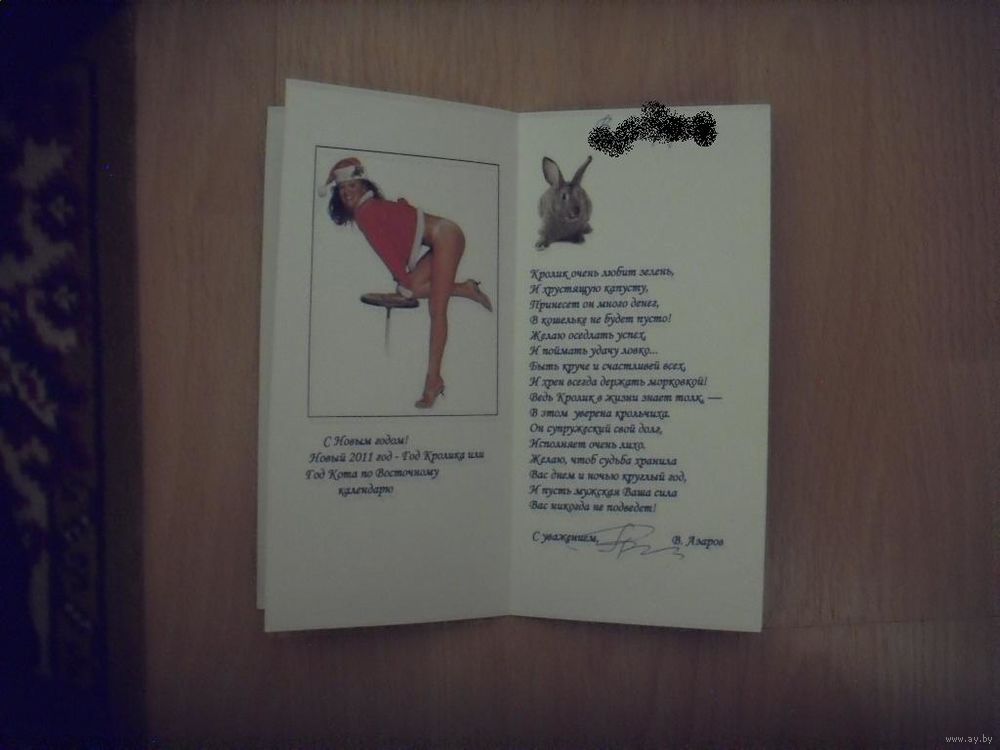 С Новым годом!
Новый 2011 год - Год Кролика или
Год Кота по Восточному
календарю
Кролик очень любит зелень,
И хрустящую капусту,
Принесет он много денег,
В кошельке не будет пусто!
Желаю оседлать успех,
И поймать удачу ловко...
Быть круче и счастливей всех,
И хрен всегда держать морковкой!
Ведь Кролик в жизни знает толк, —
В этом уверена крольчиха.
Он супружеский свой долг,
Исполняет очень лихо.
Желаю, чтоб судьба хранила
Вас днем и ночью круглый год,
И пусть мужская Ваша сила
Вас никогда не подведет!
С уважением, В. Азаров
www.ay.by